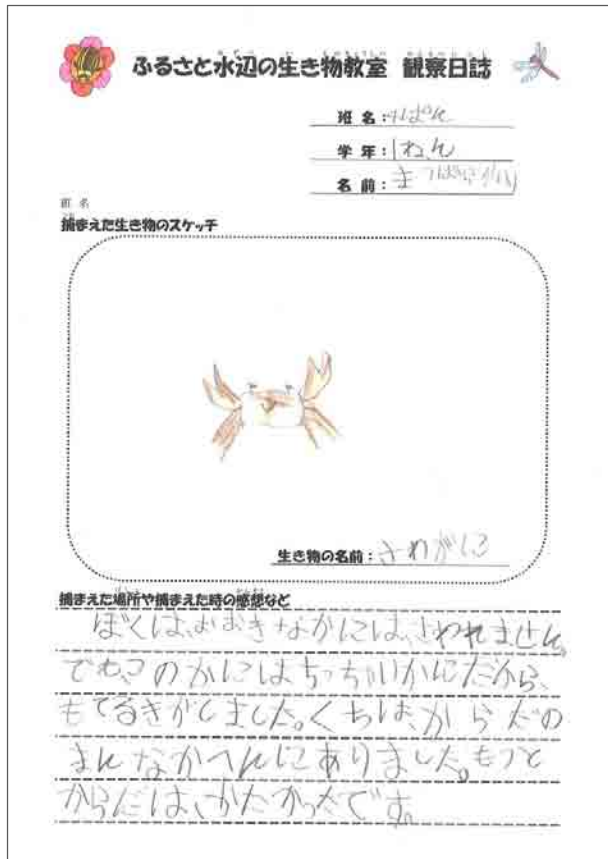 ふるさと水辺の生き物教室 観察日誌
班名:
学年:1ねん
名前:
班名
捕まえた生き物のスケッチ
生き物の名前:さわがに
捕まえた場所や捕まえた時の感想など
ぼくは、おおきなかにには、さわれません。
でも、このかにはちっちゃいかにだから、
もてるきがしました。くちは、からだの
まんなかへんにありました。もつと
からだは、かたかったです。